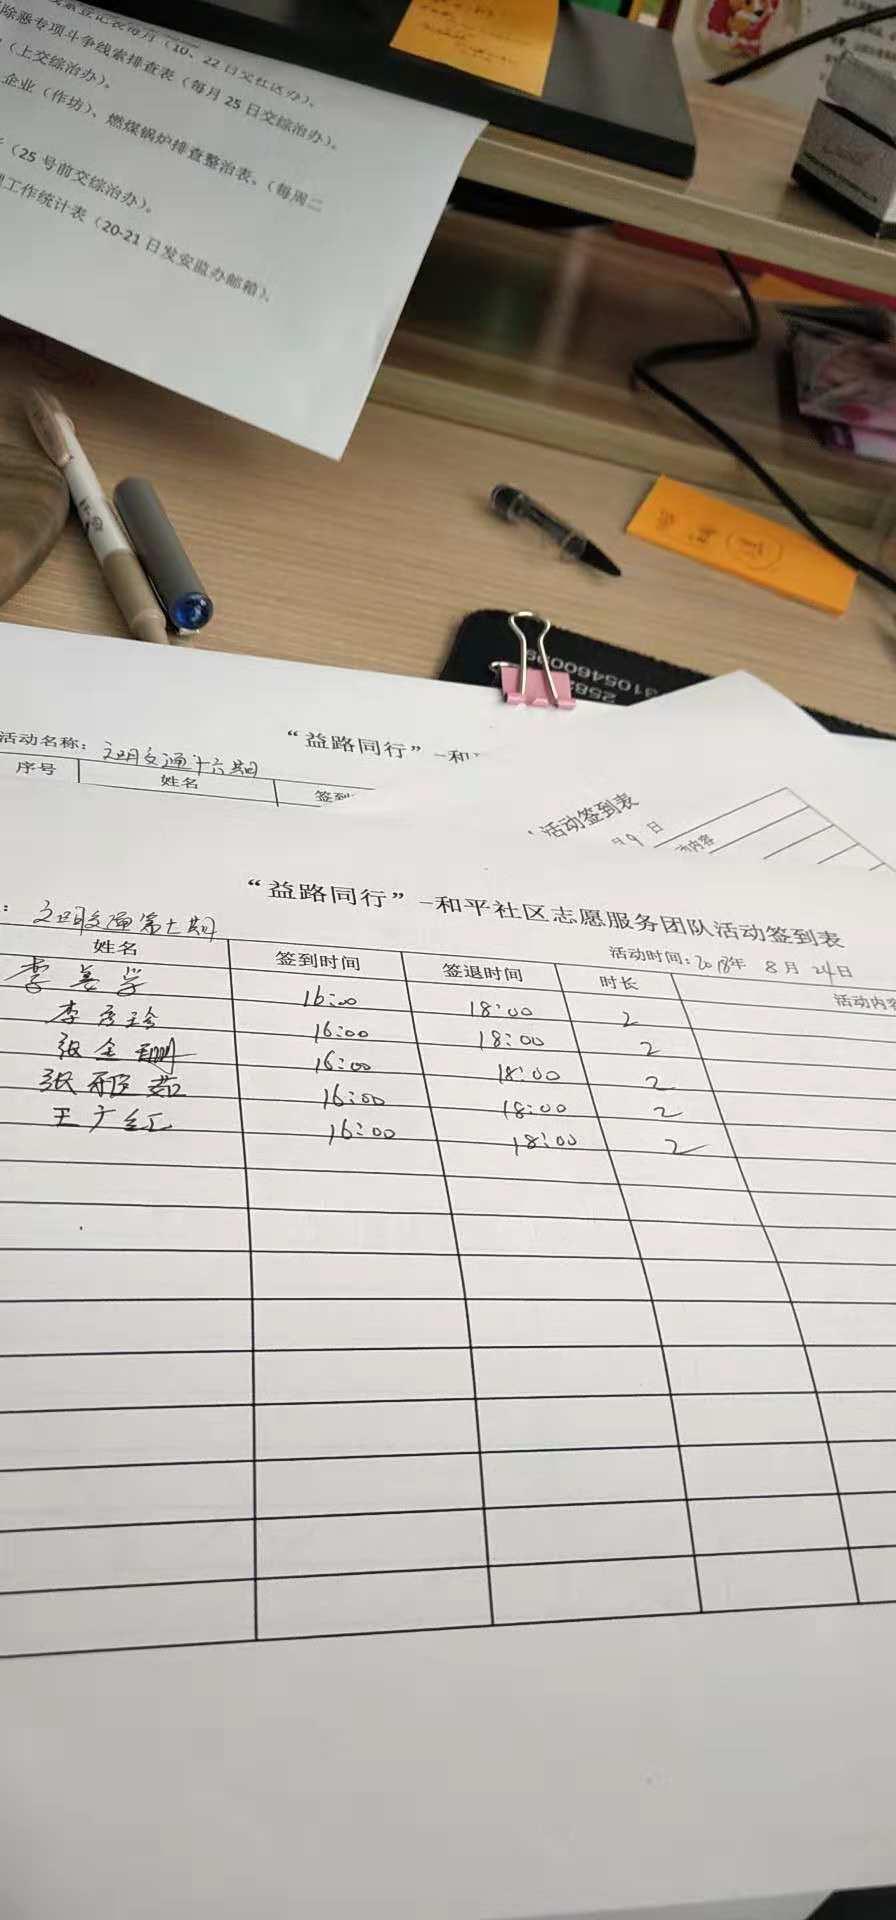 除恶专项斗争线索排查表（每月25日交综治办）。
（上交综治办）。
企业（作坊）、燃煤锅炉排查整治表、（每周二
（25号前交综治办）。
工作统计表（20-21日发安监办邮箱）。
3105460099
活动名称：文明交通十六期
“益路同行”-和
序号 姓名 签到
活动签到表
9 日
内容
“益路同行”-和平社区志愿服务团队活动签到表
：文明交通第七期 活动时间：2018年 8月 24日
姓名 签到时间 签退时间 时长 活动内容
李善学 16:00 18:00 2
李彦珍 16:00 18:00 2
张金 16:00 18:00 2
张雅茹 16:00 18:00 2
王广红 16:00 18:00 2